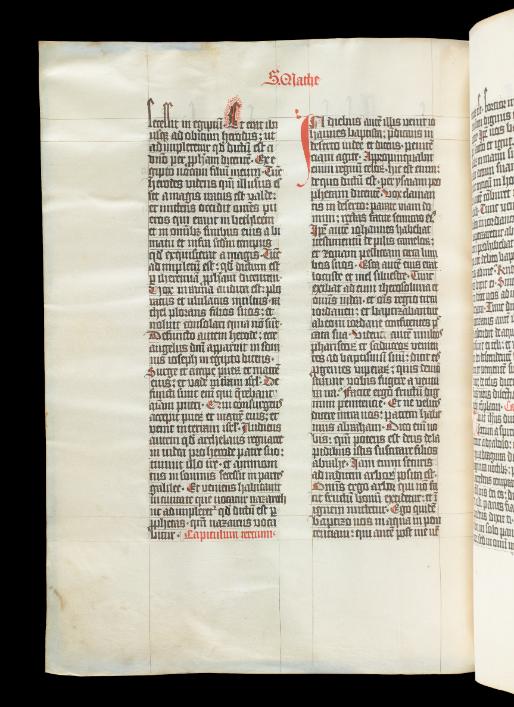 S. Mathe
secessit in egiptū. Et erat ibi
usq; ad obitum herodis: ut
adimpleretur qd dictū est a
dño per ꝓphām dicentē. Ex e-
gipto vocaui filiū meum. Tūc
herodes videns qm̄ illusus eēt
a magis iratus est valde:
et mittens occidit om̄es pu
eros qui erant in bethleem
et in om̄ibȝ finibus eius a bi
matu et infra scdm̄ tempus
qd exquisierat a magis. Tūc
adimpletū est: qd dictum est
ꝑ iheremiā ꝓphām dicentem.
Vox in rama audita est: plo
ratus et ululatus multus ra
chel plorans filios suos: et
noluit consolari quia nō sūt.
Defuncto autem herode: ecce
angelus dn̄i apparuit in som
nis ioseph in egipto dicens.
Surge et accipe puerū et matrē
eius: et vade in terram isrl. De
functi sunt eni qui querebant
aīam pueri. Qui consurgens
accepit puerū et matrē eius: et
venit in terram isrl. Audiens
autem qd archelaus regnaret
in iudea pro herode patre suo:
timuit illo ire. et admoni
tus in somnis secessit in partes
galilee. Et veniens habitauit
in ciuitate que vocatur nazareth
ut adimpleret' qd dictū est ꝑ
ꝓphetas. qm̄ nazareus voca
bitur. Capitulum tercium.
In diebus autē illis venit io
hannes baptista: p̄dicans in
deserto iudee et dicens. peniten
ciam agite. Appropinquabit
enim regnum celoȝ. hic est enim:
de quo dictū est. per ysayam pro
phetam dicentē. vox clamantis
in deserto: parate viam do
mini: rectas facite semitas eiꝰ
Ipse autē iohannes habebat
vestimentū de pilis camelorȝ:
et zonam pelliceam circa lum
bos suos. Esca autē eius erat
locuste et mel siluestre. Tunc
exibat ad eum iherosolima et
omīs iudea. et oīs regio circa
iordanen: et baptizabantur
ab eo in iordane confitentes pec
cata sua. Videns autē multos
phariseoȝ et saduceoȝ venien
tes ad baptismū suū: dixit eis.
Progenies viperaȝ: quis demō
strauit vobis fugere a ventu
ra ira. Facite ergo fructū dig
num penitencie. Et ne velitis
dicere intra vos: patrem habe
mus abraham. Dico eni vo
bis: qm̄ potens est deus de la
pidibus istis suscitare filios
abrahe. Iam enim securis
ad radicem arboȝ posita est.
Omnis ergo arbor que nō fa
cit fructū bonū excidetur: et ī
ignem mittetur. Ego quidē
baptizo vos in aqua in peni
tenciam: qui autē post me vē